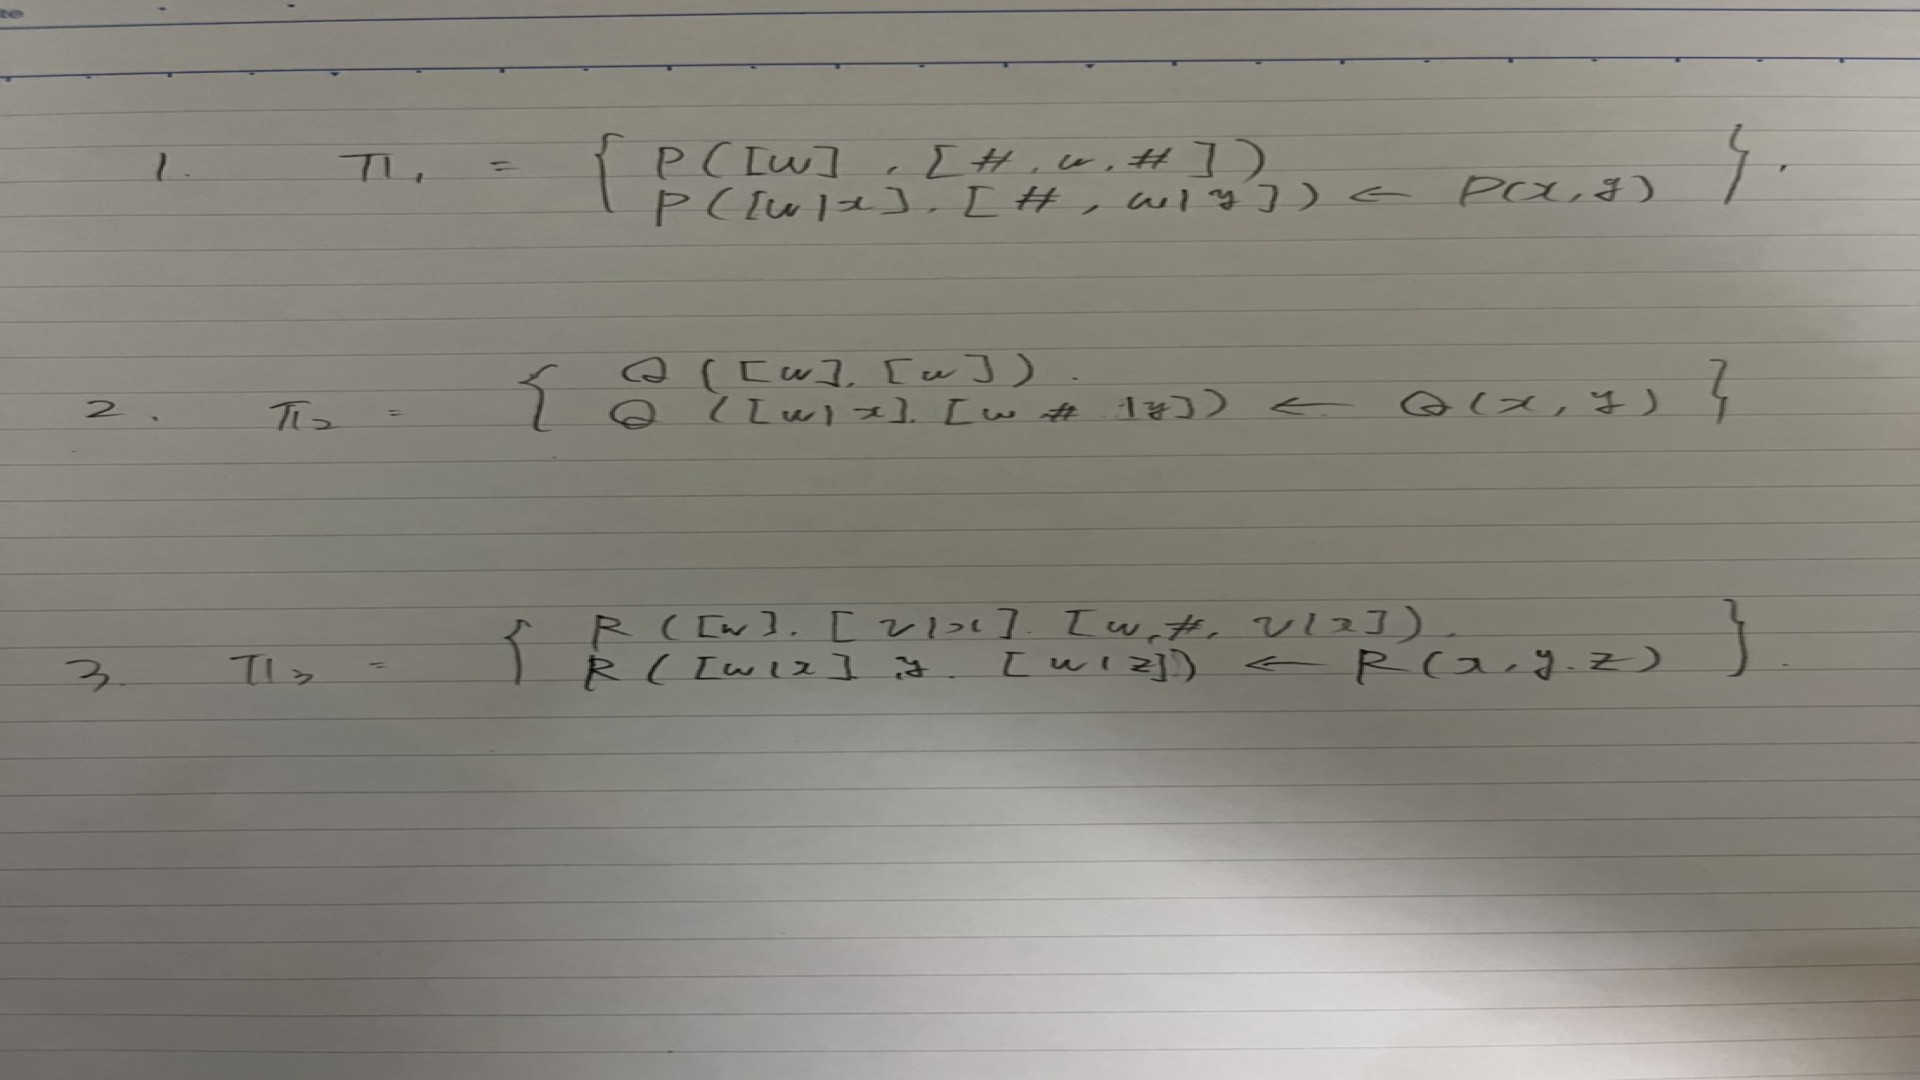 1. π₁ = { P([w], [#, w, #])
P([w|x], [#, w|y]) ← P(x, y) }.
2. π₂ = { Q([w], [w]).
Q([w|x], [w # |y]) ← Q(x, y) }
3. π₃ = { R([w], [v|x], [w, #, v|x]).
R([w|x], y, [w|z]) ← R(x, y, z) }.